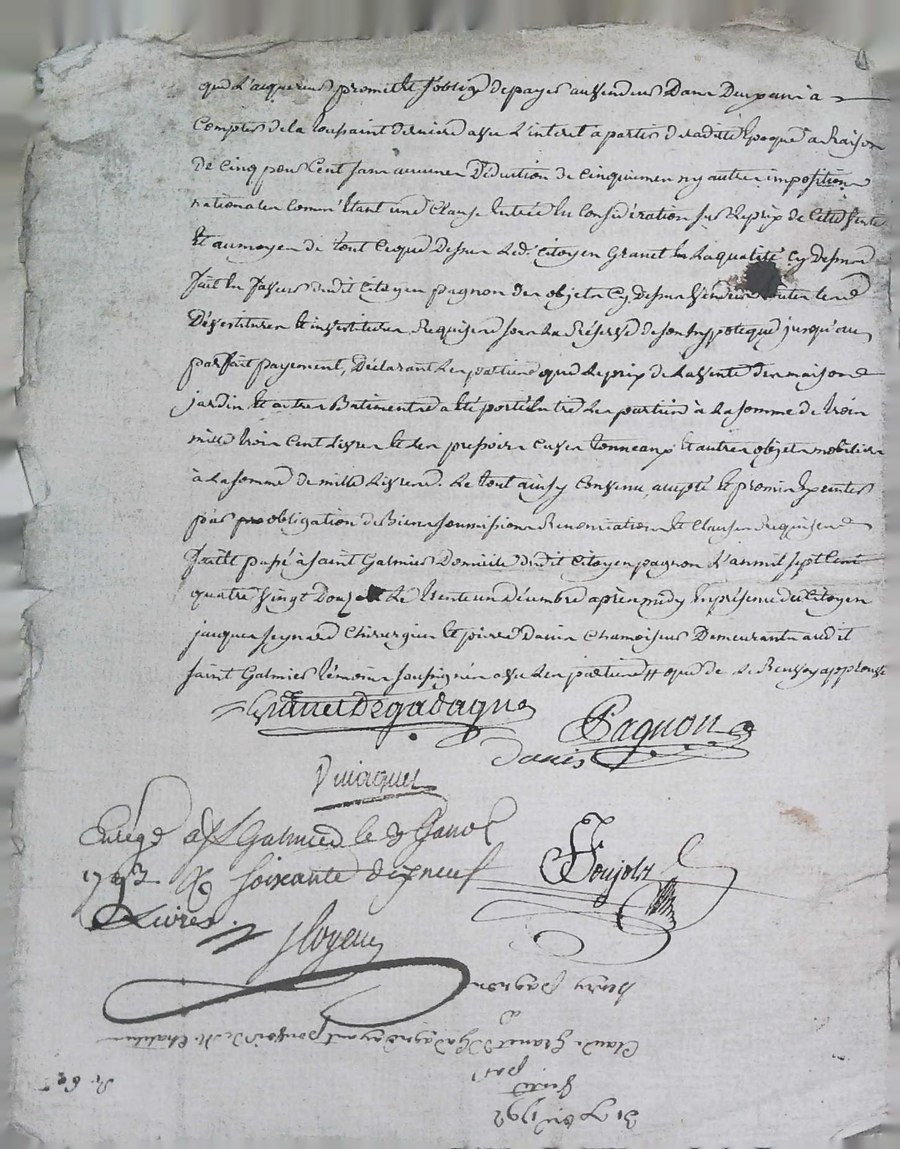 que l'acquereur promet et s'oblige de payer au vendeur dans deux ans à
compter de la toussaint derniere avec l'interet a partir de ladite Epoque a Raison
de cinq pour cent sans aucunes Déduction de cinquiemes ny autres impositions
nationales comm'Etant une clause Entrée En Considération sur le prix de cette vente
Et au moyen de tout ce que Dessus led. citoyen Granet En la qualité cy dessus
fait En faveur dudit citoyen pagnon des objets cy dessus vendus toutes les
Dévestitures et investitures Requises sous la Réserve de son hyppoteque jusqu'au
parfait payement, Déclarant les parties que le prix de la vente des maison
jardin et autres Batiments a été porté Entre les parties à la somme de trois
mille trois cent Livres et les pressoir cuves tonneaux et autres objets mobiliers
à la somme de mille Livres. Le tout ainsy convenu, accepté et promis Executer
par obligation de Biens soumissions Renonciations et Clauses Requises
fait et passé à saint Galmier Domicile dudit Citoyen pagnon L'an mil sept Cent
quatre vingt Douze Le trente un Décembre après midy En présence des Citoyen
jacques seynard chirurgien et pierre davin chamoiseur Demeurants audit
saint Galmier témoins soussignés avec les parties que de Le Renvoy approuvé
Granet Degadagne
Pagnon
Davin
Enregé a St Galmier le 3 Janv
1793 Soixante dix neuf
Livres.
henry pagnon
a
Claude Granet ayant pouvoir de
par
31 1792